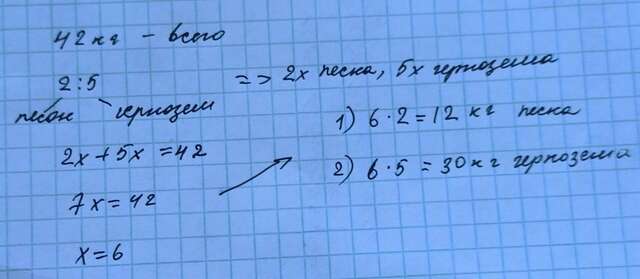 42 кг – всего
2:5
песок чернозем
2x + 5x = 42
7x = 42
x = 6
=> 2x песка, 5x чернозема
1) 6 · 2 = 12 кг песка
2) 6 · 5 = 30 кг чернозема